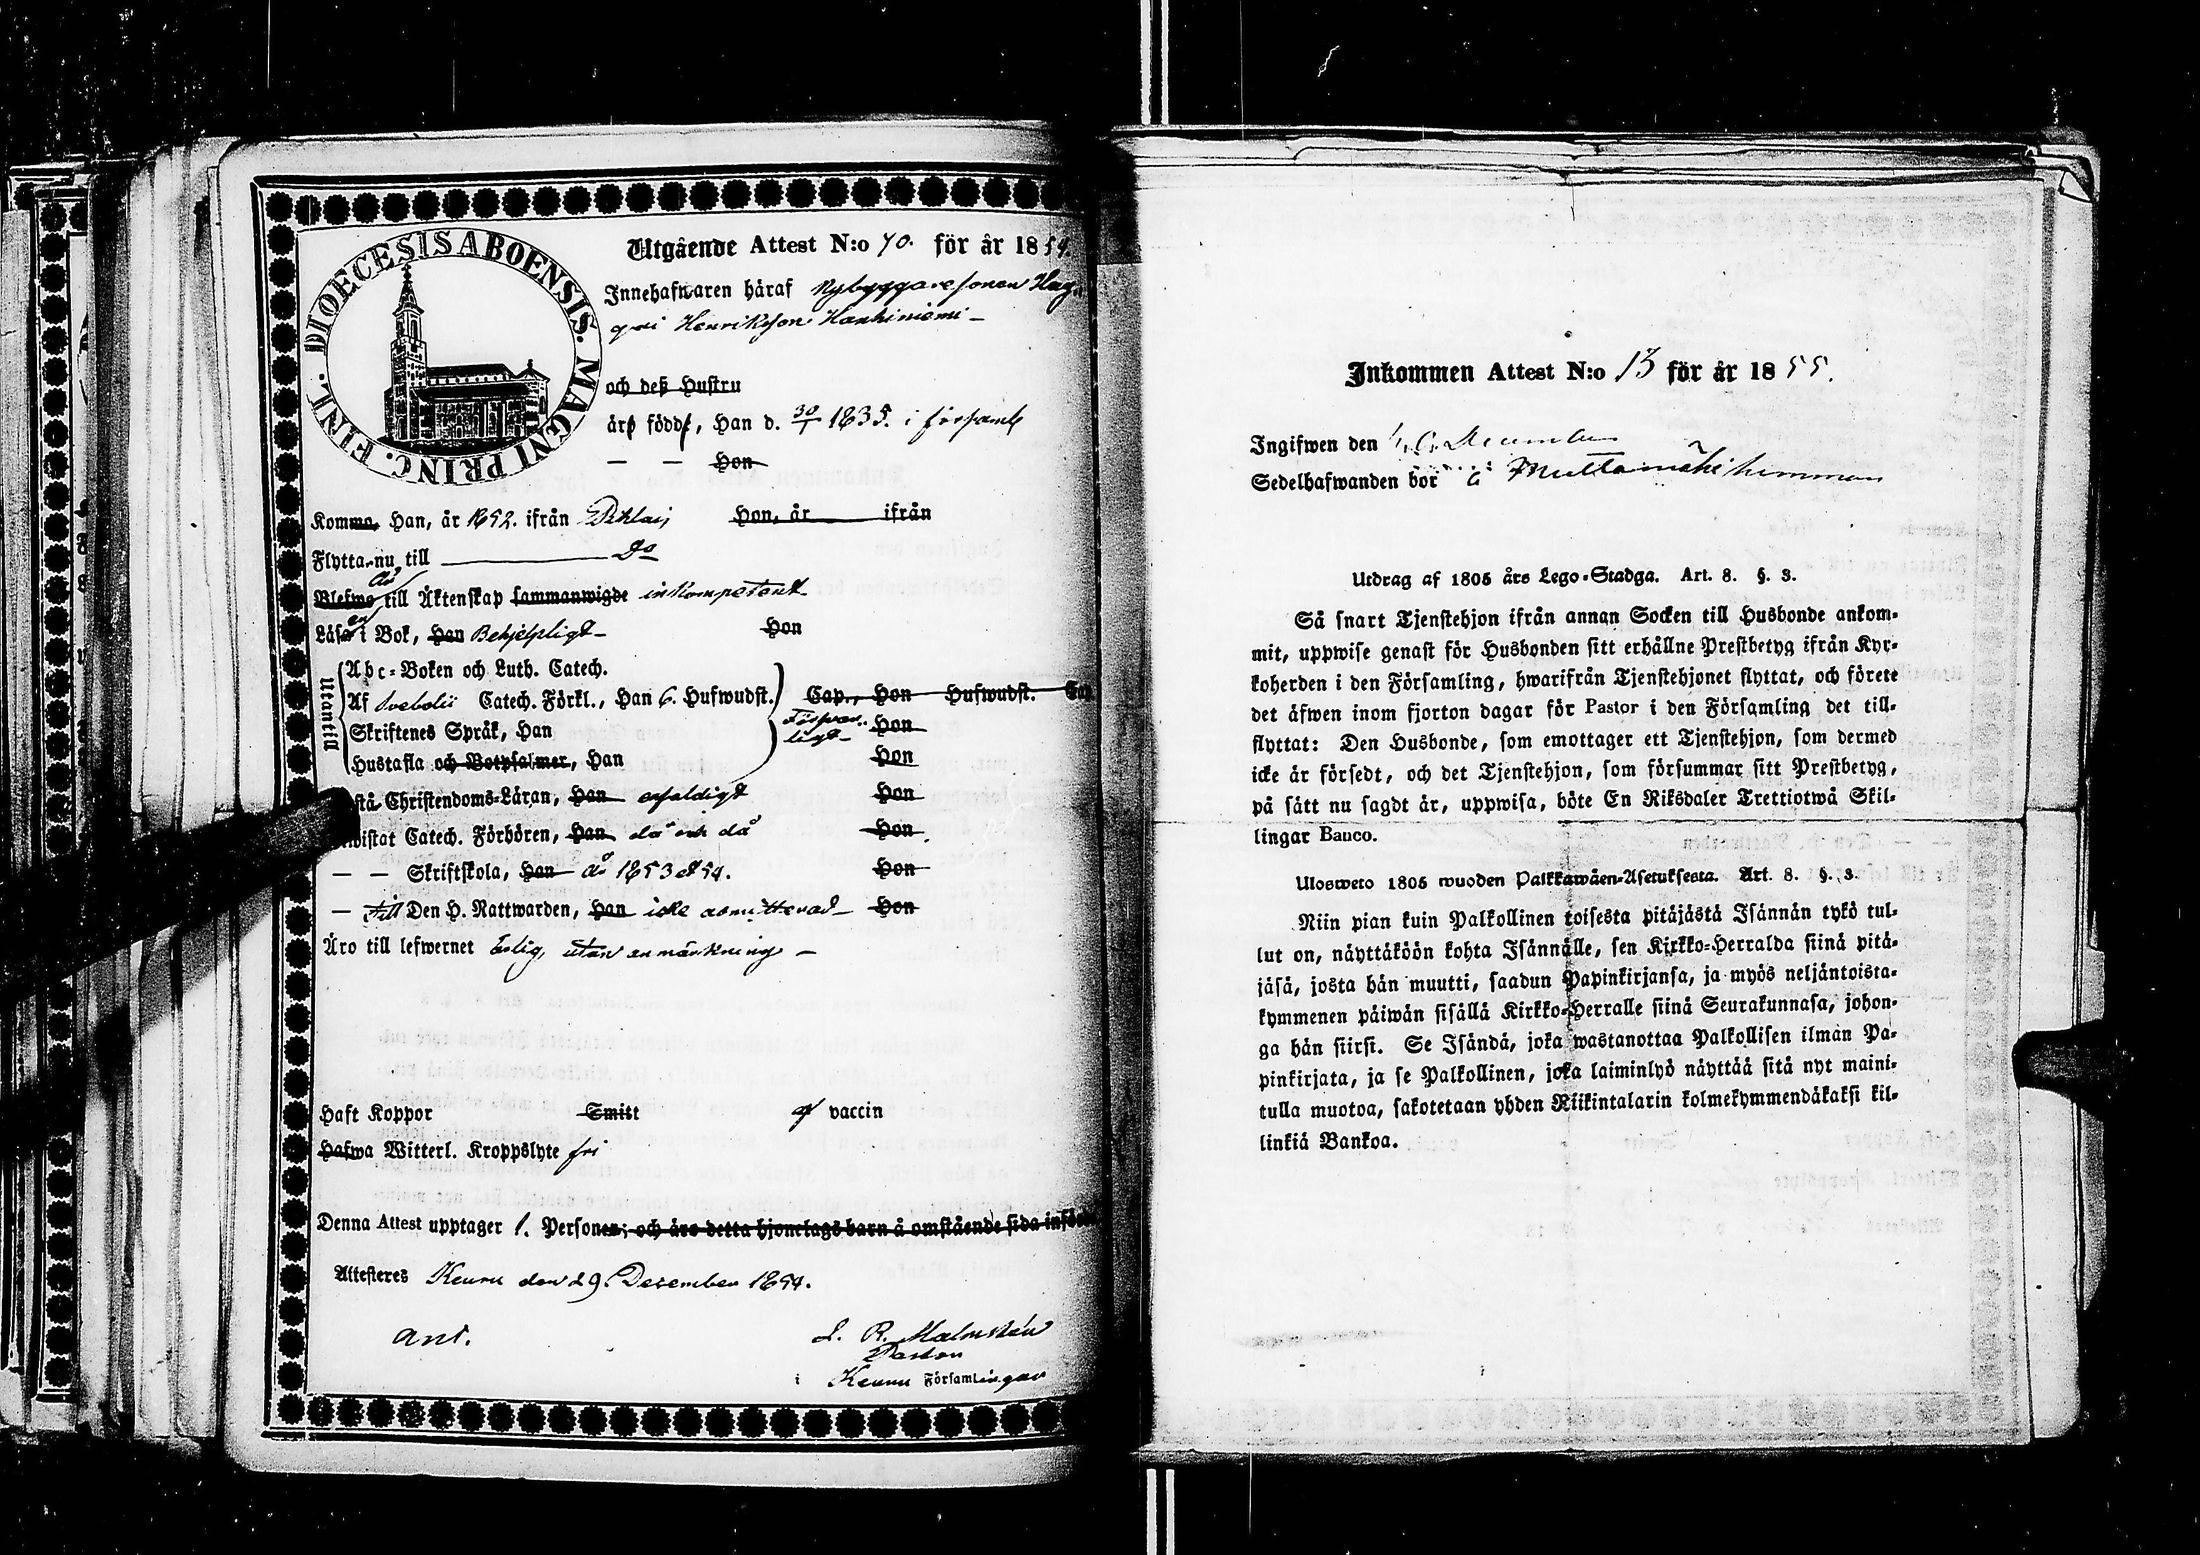 DIOECESIS ABOENSIS. MAGNI PRINC. FINL.
Utgående Attest N:o 70. för år 1854.
Innehafwaren häraf Nybyggaresonen
Henriksson
och deß Hustru
äro födde, Han d. 30/1 1835. i församl
— — Hon
Komma, Han, år 1852. ifrån Hon, år ifrån
Flytta nu till do
Blefwo till Äktenskap sammanwigde inkompetent
Läsa i Bok, Han Behjelpligt Hon
Utantill
Abc-Boken och Luth. Catech.
Af Svebelii Catech. Förkl., Han 6. Hufwudst. Cap., Hon Hufwudst. Cap
Skriftenes Språk, Han Hon
Hustafla och Botpsalmer, Han Hon
stå Christendoms-Läran, Han enfaldigt Hon
wistat Catech. Förhören, Han då och då Hon
— — Skriftskola, Han år 1853 & 54. Hon
— till Den H. Nattwarden, Han icke admitterad Hon
Äro till lefwernet ärlig, utan anmärkning —
Haft Koppor Smitt af vaccin
Hafwa Witterl. Kroppslyte fri
Denna Attest upptager 1. Personer; och äro detta hjonelags barn å omstående sida införde
Attesteres Keuru den 29. December 1854.
ant.
L. R. Malmstén
Pastor
i Keuru Församlingar
Inkommen Attest N:o 13 för år 1855.
Ingifwen den
Sedelhafwanden bor å Muttamäki hemman
Utdrag af 1805 års Lego-Stadga. Art. 8. §. 3.
Så snart Tjenstehjon ifrån annan Socken till Husbonde ankom-
mit, uppwise genast för Husbonden sitt erhållne Prestbetyg ifrån Kyr-
koherden i den Församling, hwarifrån Tjenstehjonet flyttat, och förete
det äfwen inom fjorton dagar för Pastor i den Församling det till-
flyttat: Den Husbonde, som emottager ett Tjenstehjon, som dermed
icke är försedt, och det Tjenstehjon, som försummar sitt Prestbetyg,
på sätt nu sagdt är, uppwisa, böte En Riksdaler Trettiotwå Skil-
lingar Banco.
Ulosweto 1805 wuoden Palkkawäen-Asetuksesta. Art. 8. §. 3.
Niin pian kuin Palkollinen toisesta pitäjästä Isännän tykö tul-
lut on, näyttäköön kohta Isännälle, sen Kirkko-Herralda siinä pitä-
jäsä, josta hän muutti, saadun Papinkirjansa, ja myös neljäntoista-
kymmenen päiwän sisällä Kirkko-Herralle siinä Seurakunnasa, johon-
ga hän siirsi. Se Isändä, joka wastanottaa Palkollisen ilman Pa-
pinkirjata, ja se Palkollinen, joka laiminlyö näyttää sitä nyt maini-
tulla muotoa, sakotetaan yhden Riikintalarin kolmekymmendäkaksi kil-
linkiä Bankoa.